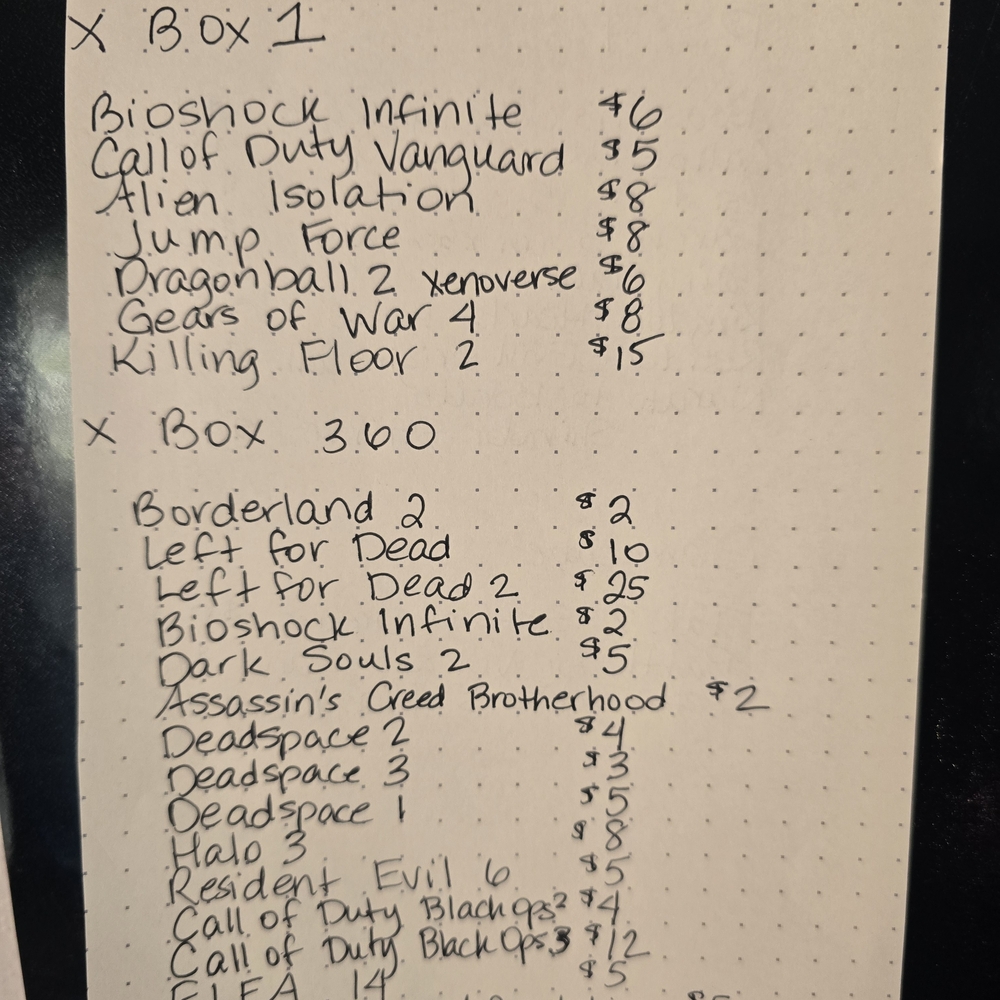 X BOX 1
Bioshock Infinite $6
Call of Duty Vanguard $5
Alien Isolation $8
Jump Force $8
Dragonball 2 xenoverse $6
Gears of War 4 $8
Killing Floor 2 $15
X BOX 360
Borderland 2 $2
Left for Dead $10
Left for Dead 2 $25
Bioshock Infinite $2
Dark Souls 2 $5
Assassin's Creed Brotherhood $2
Deadspace 2 $4
Deadspace 3 $3
Deadspace 1 $5
Halo 3 $8
Resident Evil 6 $5
Call of Duty Black Ops 2 $4
Call of Duty Black Ops 3 $12
FIFA 14 $5